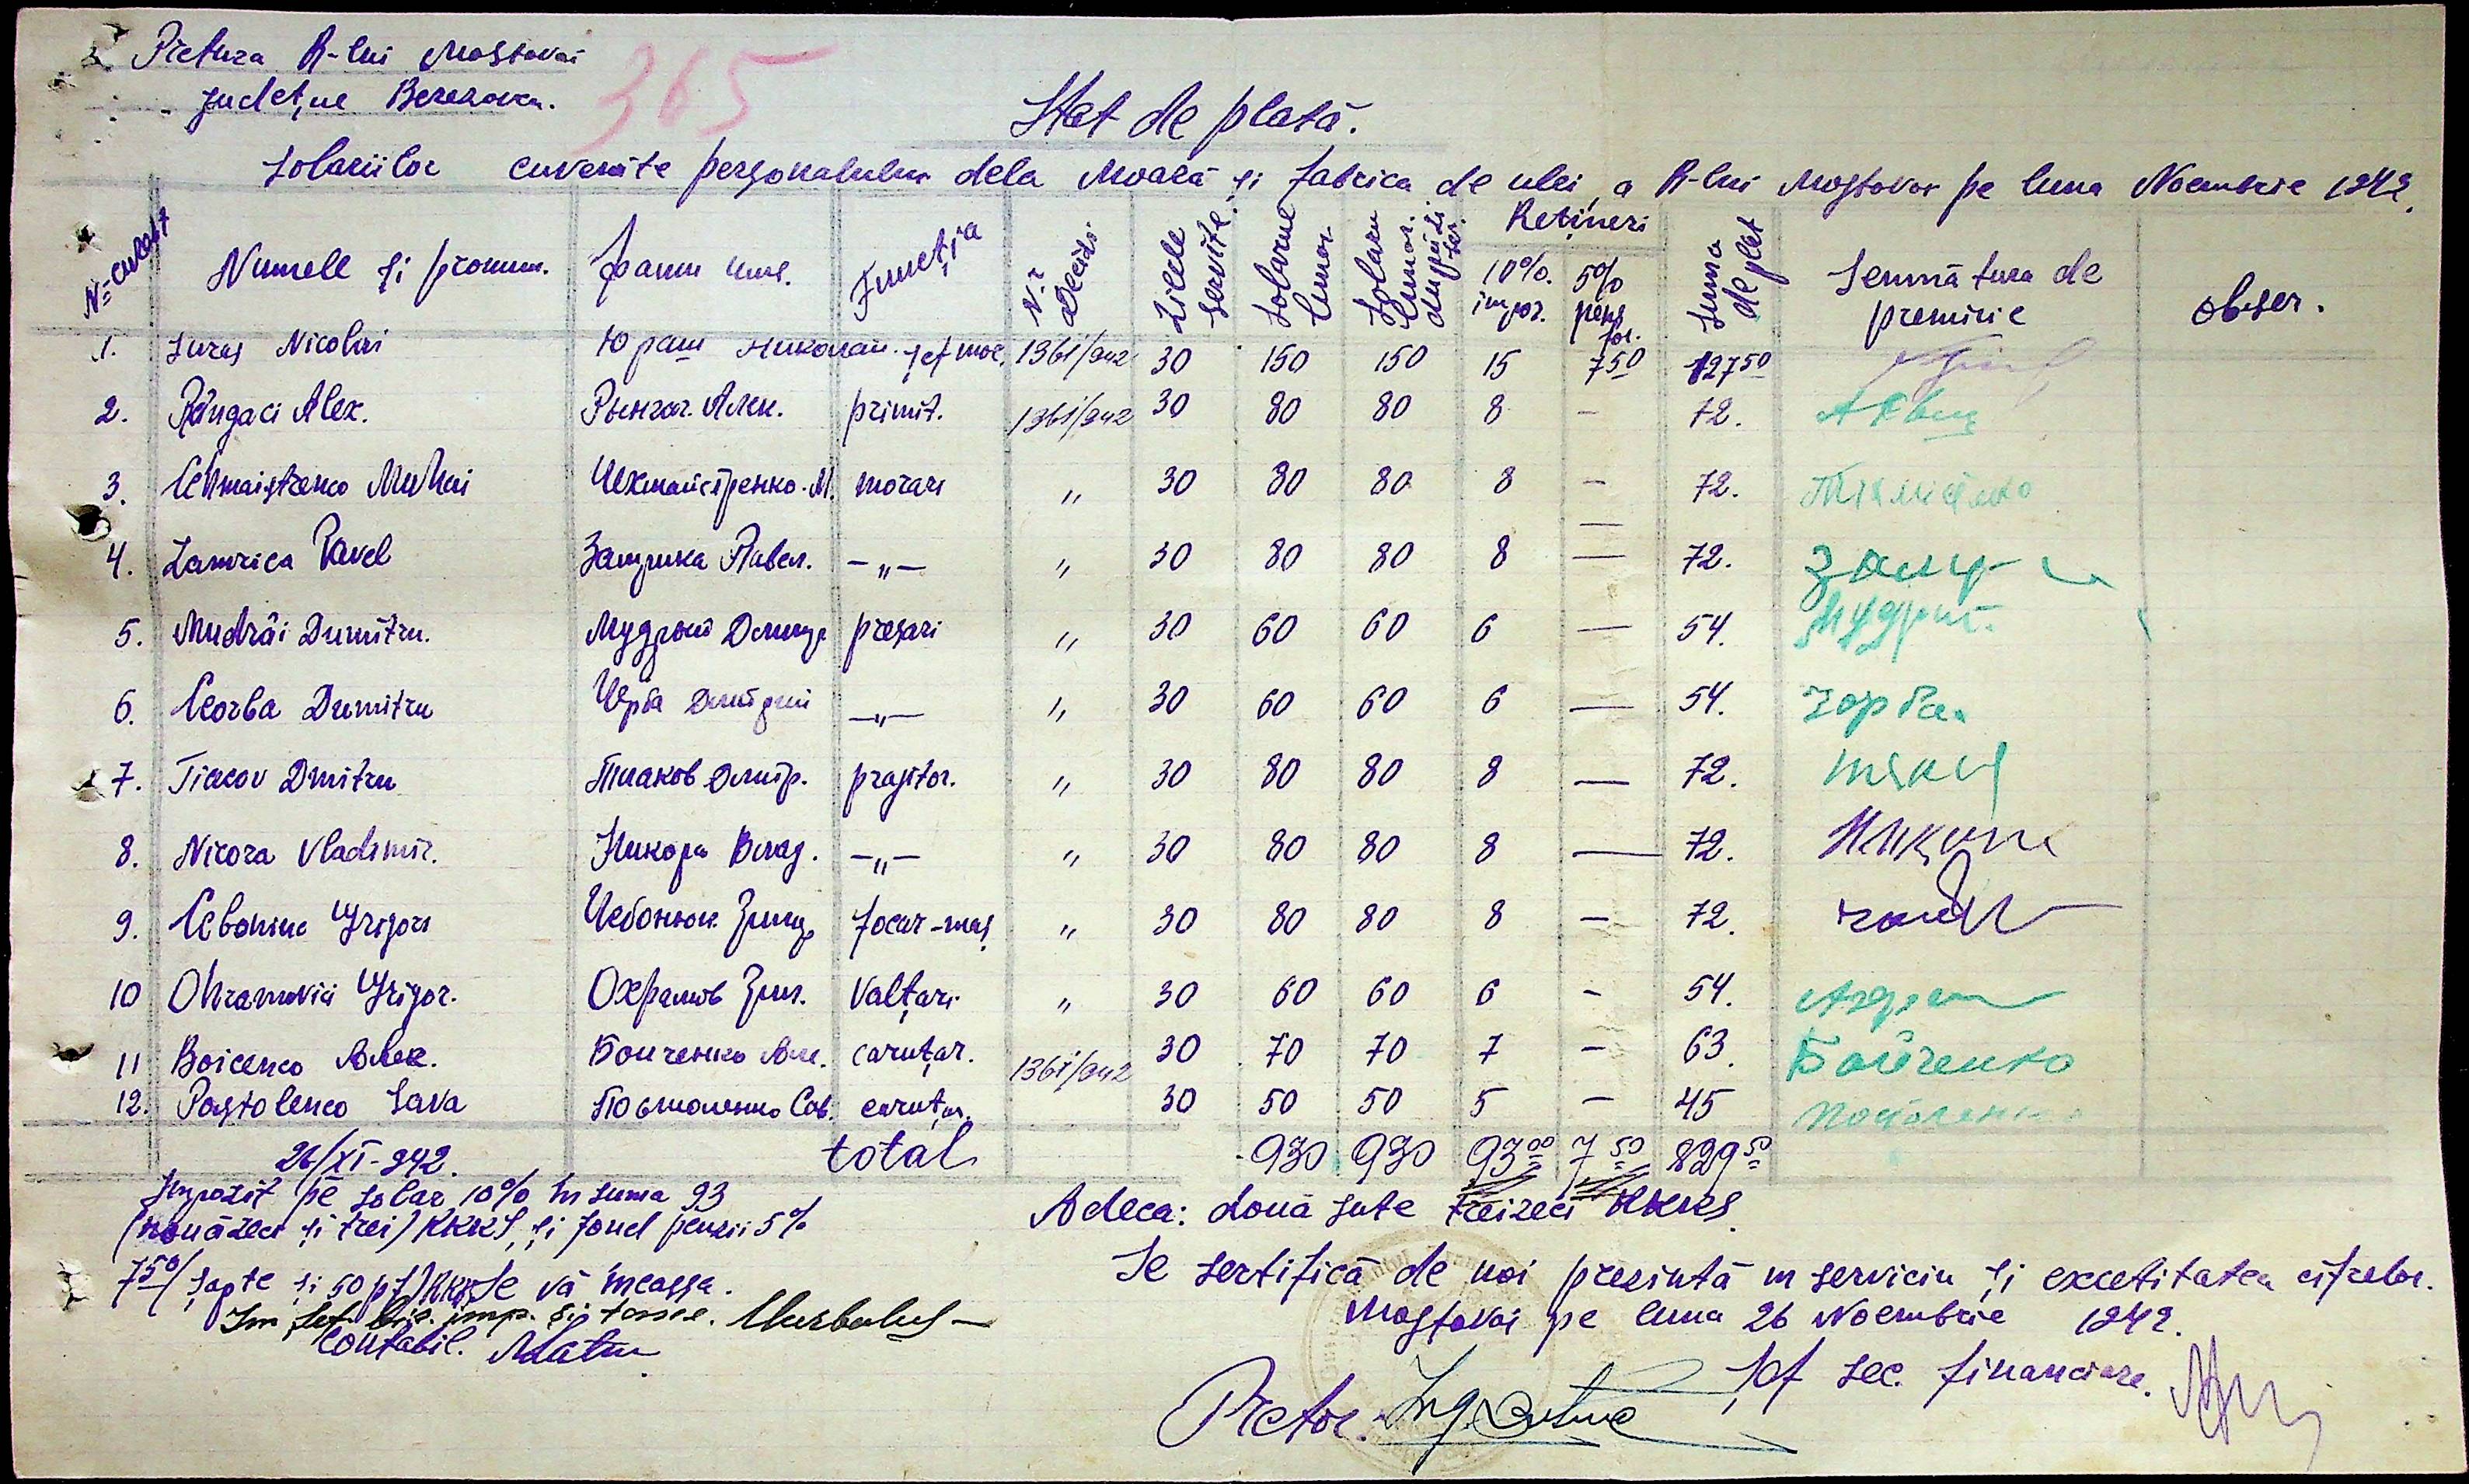 Pretura R-lui Mostovoi
județue Berezovca.
365
Stat de plată.
solariilor cuvenite personalului dela Moară și fabrica de ulei, a R-lui Mostovoi pe luna Noembrie 1942.
№ curent Numele și pronum. фами имя. Funcția N-r Decizi Zilele servite. Solariul lunar. Solariu lunar. după Rețineri 10% impoz. 5% pens for. Suma de plăt Semnătura de premirie obser.
1. Iuraș Nicolai Юраш Николай șef mor. 1361/942 30 150 150 15 7 50 127 50
2. Rângaci Alex. Рынгач. Алек. primit. 1361/942 30 80 80 8 — 72.
3. Cehmaistrenco Mihai Чехмайстренко. М. morari „ 30 80 80 8 — 72.
4. Zamrica Pavel Замрика Павел. —„— „ 30 80 80 8 — 72.
5. Mudrâi Dumitru. Мудрый Дмитр presari „ 30 60 60 6 — 54. Мудрый.
6. Ceorba Dumitru Чорба Дмитрий —„— „ 30 60 60 6 — 54. Чорба.
7. Tiacov Dmitru Тиаков Дмитр. prajitor. „ 30 80 80 8 — 72.
8. Nicora Vladimir. Никора Влад. —„— „ 30 80 80 8 — 72. Никора
9. Cebaniuc Grigori Чебонюк. Григ focar-maș „ 30 80 80 8 — 72.
10 Ohramovici Grigor. Охрамов Григ. Valțari „ 30 60 60 6 — 54.
11 Boicenco Alex. Бойченко Але. caruțar. 1361/942 30 70 70 7 — 63. Бойченко
12. Postolenco Sava Постоленко Сав. caruțar. 30 50 50 5 — 45 Постоленко
26/XI-942. total 930 930 93 00 7 50 829 50
Impozit pe solar 10% în suma 93
(nouăzeci și trei) RKKS, și fond penzii 5%
7 50 (șapte și 50 pf) RKKS se vă incassa.
Contabil.
Adeca: două sute treizeci RKKS.
Se sertifică de noi prezintă in serviciu și excetitatea cifrelor.
Mostovoi pe luna 26 Noembrie 1942.
Pretor: Șef sec. financiare.